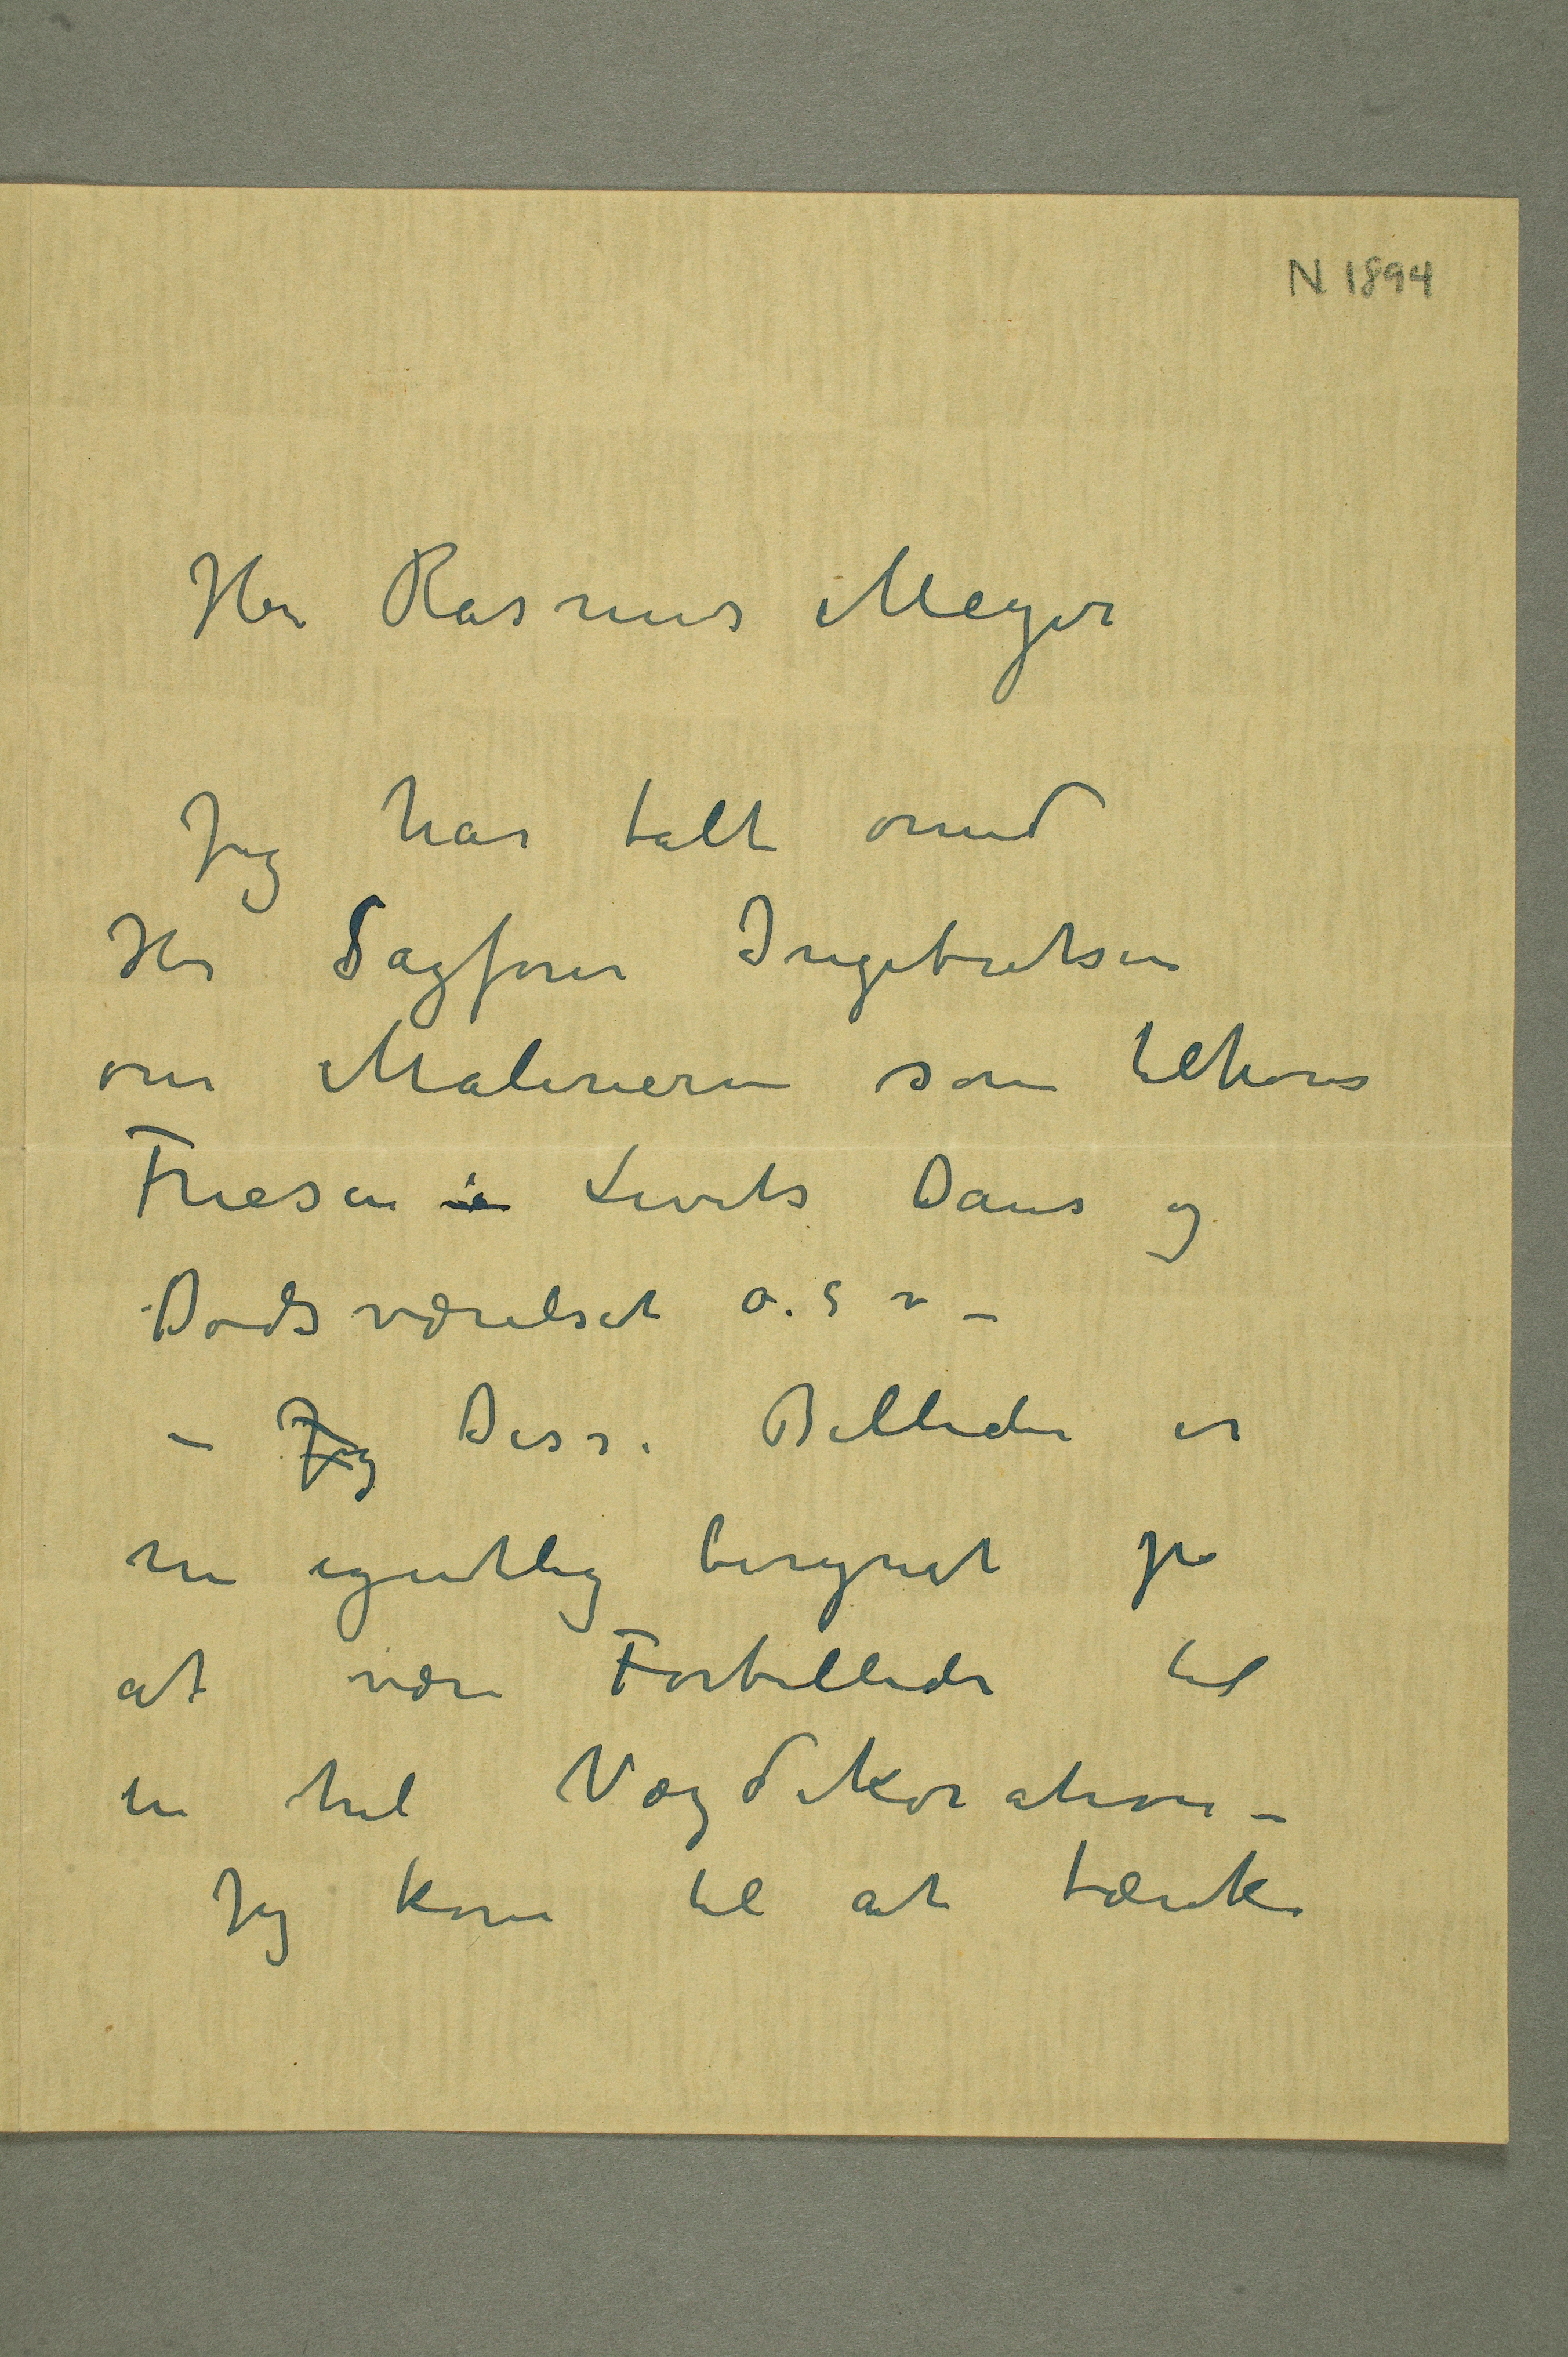 N 1894
Herr Rasmus Meyer
Jeg har talt med
Hr Sagfører Ingebretsen
om Malerierne som tilhører
Friesen i Livets Dans og
Dødsværelset o. s v –
– Jeg Disse Billeder er
nu egentlig beregnet på
at være Forbilleder til
en hel Vægdekoration –
Jeg kom til at tænke